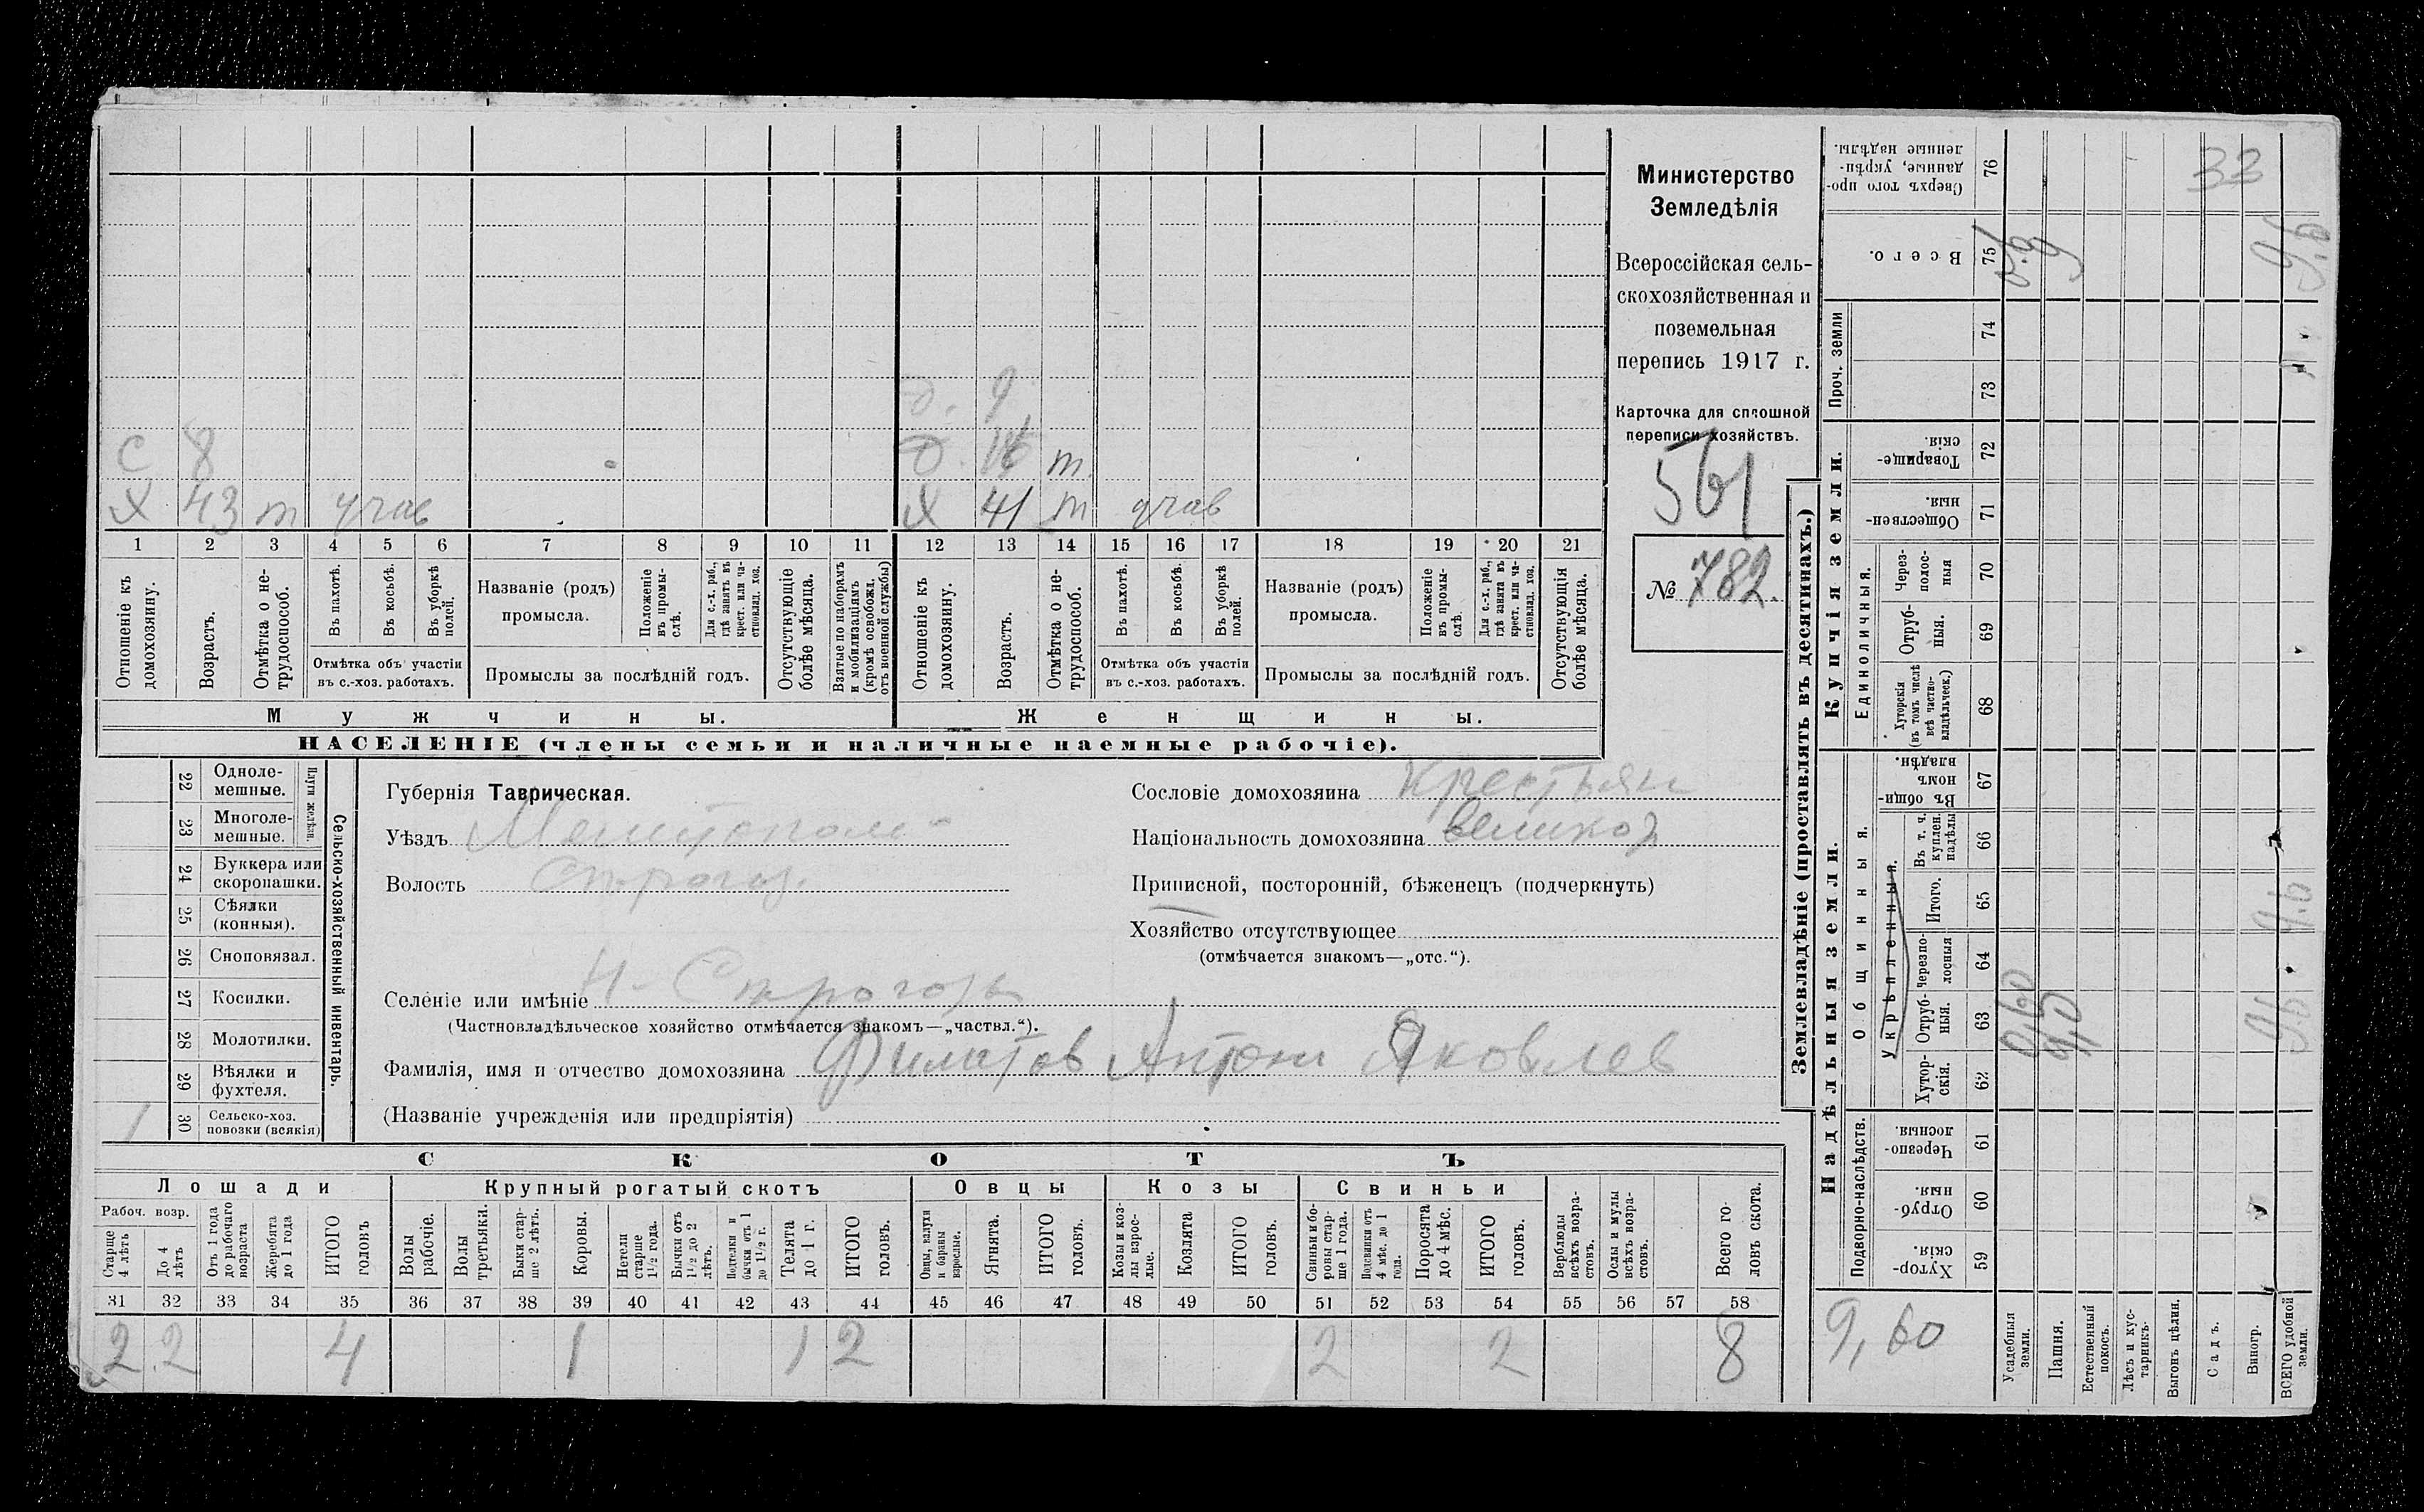 с 8
х 43 т учав
д. 9
д. 16 т.
х 41 т учав
1 2 3 4 5 6 7 8 9 10 11 12 13 14 15 16 17 18 19 20 21
Отношеніе къ домохозяину.
Возрастъ.
Отмѣтка о не-
трудоспособ.
Въ пахотѣ.
Въ косьбѣ.
Въ уборкѣ
полей.
Отмѣтка объ участіи
въ с.-хоз. работахъ.
Названіе (родъ)
промысла.
Положеніе
въ промы-
слѣ.
Для с.-х. раб.,
гдѣ занятъ въ
крест. или ча-
стновлад. хоз.
Промыслы за послѣдній годъ.
Отсутствующіе
болѣе мѣсяца.
Взятые по наборамъ
и мобилизаціямъ
(кромѣ освобожд.
отъ военной службы)
Отношеніе къ
домохозяину.
Возрастъ.
Отмѣтка о не-
трудоспособ.
Въ пахотѣ.
Въ косьбѣ.
Въ уборкѣ
полей.
Отмѣтка объ участіи
въ с.-хоз. работахъ.
Названіе (родъ)
промысла.
Положеніе
въ промы-
слѣ.
Для с.-х. раб.,
гдѣ занята въ
крест. или ча-
стновлад. хоз.
Промыслы за послѣдній годъ.
Отсутствующія
болѣе мѣсяца.
Мужчины.
Женщины.
НАСЕЛЕНІЕ (члены семьи и наличные наемные рабочіе).
Министерство
Земледѣлія
Всероссійская сель-
скохозяйственная и
поземельная
перепись 1917 г.
Карточка для сплошной
переписи хозяйствъ.
561
№ 782.
22 Одноле-
мешные.
23 Многоле-
мешные.
Плуги желѣзн.
24 Буккера или
скоропашки.
25 Сѣялки
(конныя).
26 Сноповязал.
27 Косилки.
28 Молотилки.
29 Вѣялки и
фухтеля.
1 30 Сельско-хоз.
повозки (всякія)
Сельско-хозяйственный инвентарь.
Губернія Таврическая.
Уѣздъ Мелитопол
Волость Строгоз.
Селеніе или имѣніе Н-Строгозы
(Частновладѣльческое хозяйство отмѣчается знакомъ—„частвл.“).
Фамилія, имя и отчество домохозяина Филатов Антон Яковлев
(Названіе учрежденія или предпріятія)
Сословіе домохозяина крестьян
Національность домохозяина великор
Приписной, посторонній, бѣженецъ (подчеркнуть)
Хозяйство отсутствующее
(отмѣчается знакомъ—„отс.“).
СКОТЪ
Лошади
Крупный рогатый скотъ
Овцы
Козы
Свиньи
Рабоч. возр.
Старше
4 лѣтъ
До 4
лѣтъ
Отъ 1 года
до рабочаго
возраста
Жеребята
до 1 года
ИТОГО
головъ
Волы
рабочіе.
Волы
третьяки.
Быки стар-
ше 2 лѣтъ.
Коровы.
Нетели
старше
1½ года.
Бычки отъ
1½ до 2
лѣтъ.
Подтелки и
бычки отъ 1
до 1½ г.
Телята
до 1 г.
ИТОГО
головъ.
Овцы, валухи
и бараны
взрослые.
Ягнята.
ИТОГО
головъ.
Козы и коз-
лы взрос-
лые.
Козлята
ИТОГО
головъ.
Свиньи и бо-
ровы стар-
ше 1 года.
Подсвинки отъ
4 мѣс. до 1
года.
Поросята
до 4 мѣс.
ИТОГО
головъ.
Верблюды
всѣхъ возра-
стовъ.
Ослы и мулы
всѣхъ возра-
стовъ.
Всего го-
ловъ скота.
31 32 33 34 35 36 37 38 39 40 41 42 43 44 45 46 47 48 49 50 51 52 53 54 55 56 57 58
2 2 4 1 1 2 2 2 8
Землевладѣніе (проставлять въ десятинахъ.)
Надѣльныя земли.
Купчія земли.
Проч. земли
Подворно-наслѣдств.
Общинныя.
Укрѣпленныя.
Единоличныя.
Сверхъ того про-
данные, укрѣп-
ленные надѣлы. 76
33
Всего. 75
0.6
9
9.6
74
73
Товарище-
скія. 72
Обществен-
ныя. 71
Через-
полос-
ныя 70
Отруб-
ныя. 69
Хуторскія
(въ томъ числѣ
всѣ частно-
владѣльческ.) 68
Въ общи-
номъ
владѣн. 67
Въ т. ч.
куплен.
надѣлы 66
Итого. 65
9.6
черезпо-
лосныя 64
Отруб-
ныя. 63
0,60
9,0
9.6
Хутор-
скія. 62
Черезпо-
лосныя. 61
Отруб-
ныя. 60
Хутор-
скія. 59
9,60
Усадебныя
земли.
Пашня.
Естественный
покосъ.
Лѣсъ и кус-
тарникъ.
Выгонъ цѣлин.
Садъ.
Виногр.
ВСЕГО удобной
земли.